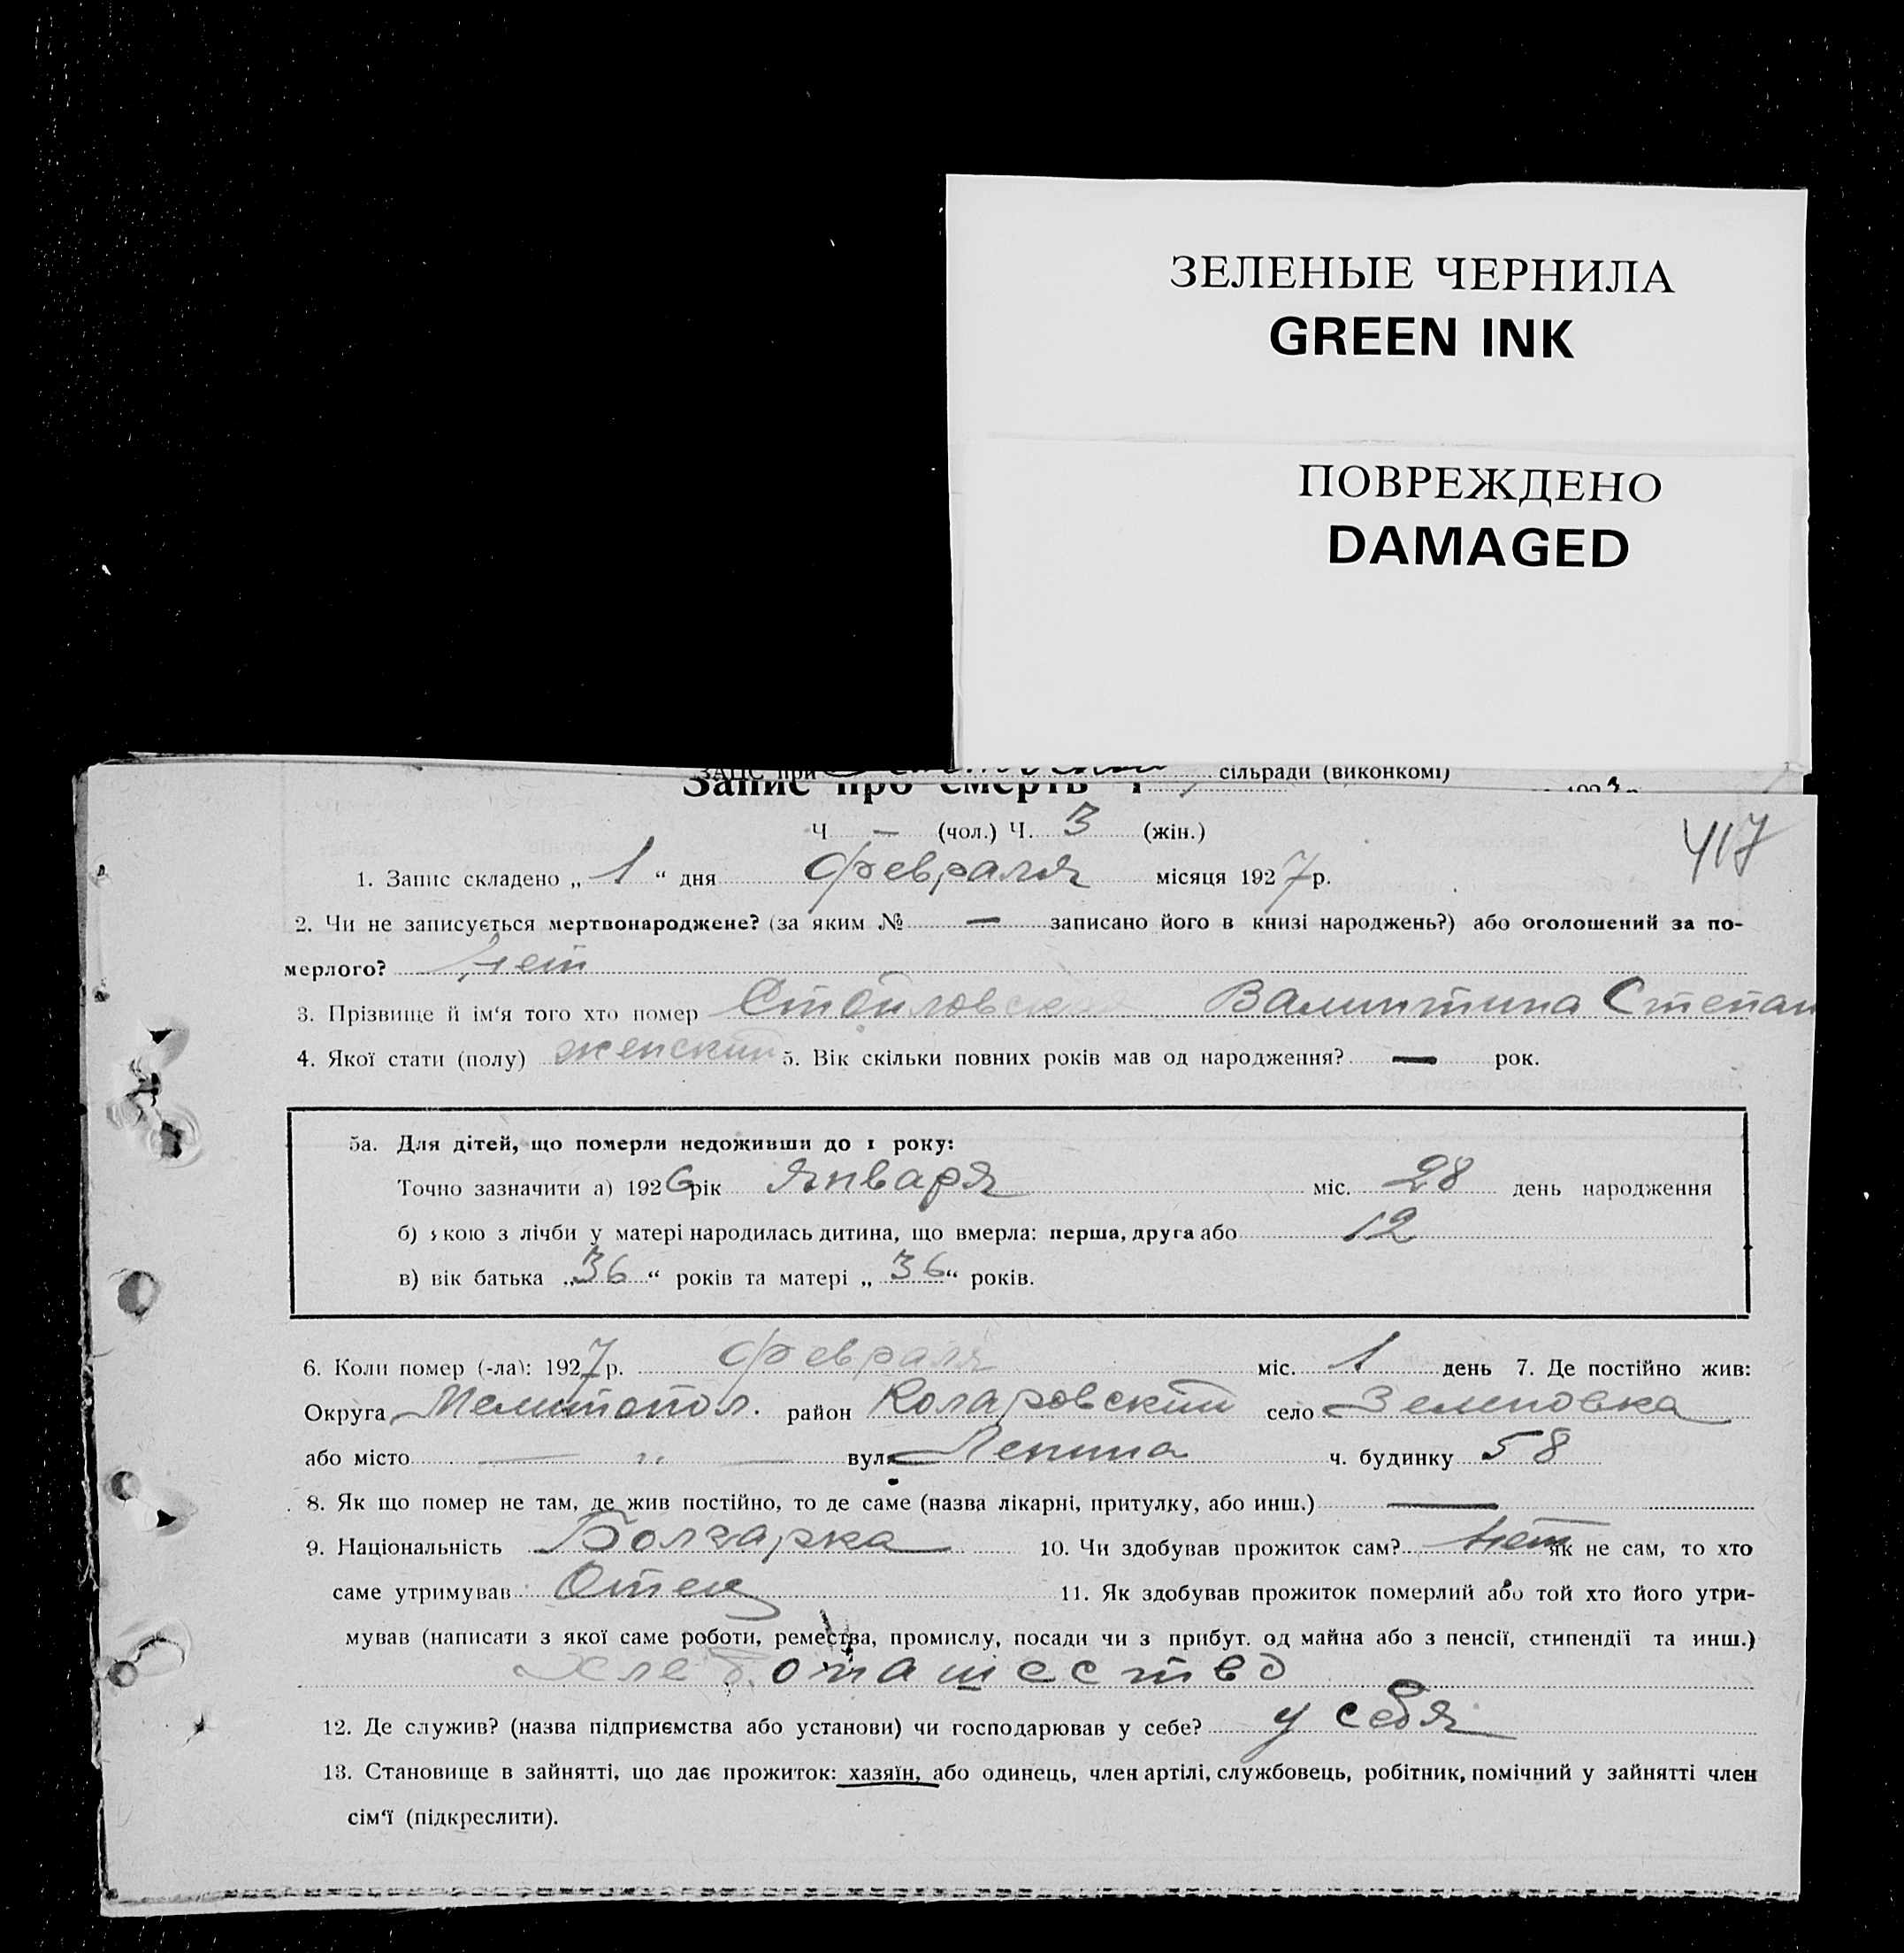 ЗЕЛЕНЫЕ ЧЕРНИЛА
GREEN INK
ПОВРЕЖДЕНО
DAMAGED
ЗАПС при сільради (виконкомі)
Запис про смерть
Ч — (чол.) Ч. 3 (жін.)
417
1. Запис складено „ 1 “ дня февраля місяця 1927 р.
2. Чи не записується мертвонароджене? (за яким № — записано його в книзі народжень?) або оголошений за по-
мерлого? нет
3. Прізвище й ім‘я того хто помер Валинтина Степан
4. Якої стати (полу) женский 5. Вік скільки повних років мав од народження? — рок.
5а. Для дітей, що померли недоживши до 1 року:
Точно зазначити а) 1926 рік Января міс. 28 день народження
б) кою з лічби у матері народилась дитина, що вмерла: перша, друга або 12
в) вік батька „ 36 “ років та матері „ 36 “ років.
6. Коли помер (-ла): 1927 р. февраля міс. 1 день 7. Де постійно жив:
Округа Мелитопол. район Коларовский село
або місто — „ — вул. Ленина ч. будинку 58
8. Як що помер не там, де жив постійно, то де саме (назва лікарні, притулку, або инш.) —
9. Національність Болгарка 10. Чи здобував прожиток сам? нет як не сам, то хто
саме утримував Отец 11. Як здобував прожиток померлий або той хто його утри-
мував (написати з якої саме роботи, ремества, промислу, посади чи з прибут. од майна або з пенсії, стипендії та инш.)
хлебопашество
12. Де служив? (назва підприємства або установи) чи господарював у себе? у себя
13. Становище в зайнятті, що дає прожиток: хазяїн, або одинець, член артілі, службовець, робітник, помічний у зайнятті член
сім‘ї (підкреслити).